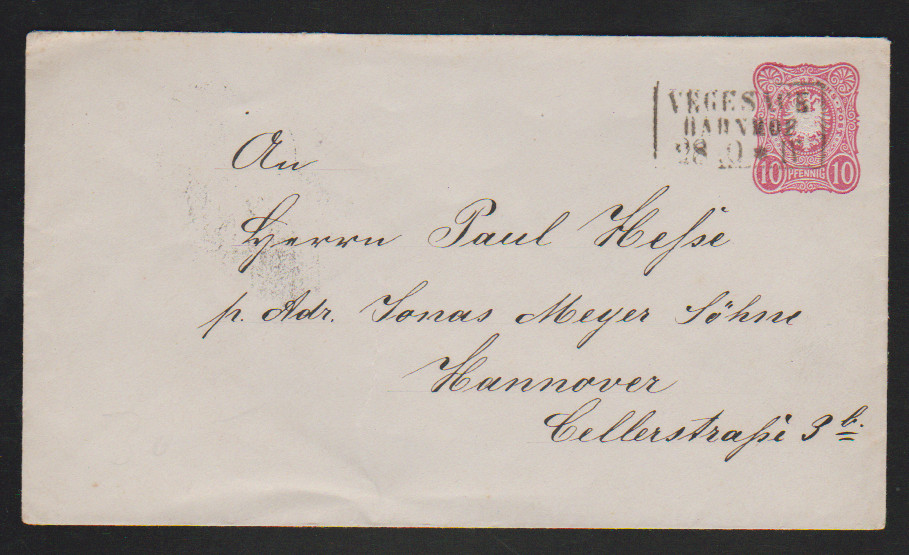 VEGESACK
BAHNHOF
10 PFENNIG 10
An
Herrn Paul Heſse
p. Adr. Jonas Meyer Söhne
Hannover
Cellerstraſse 3 b.